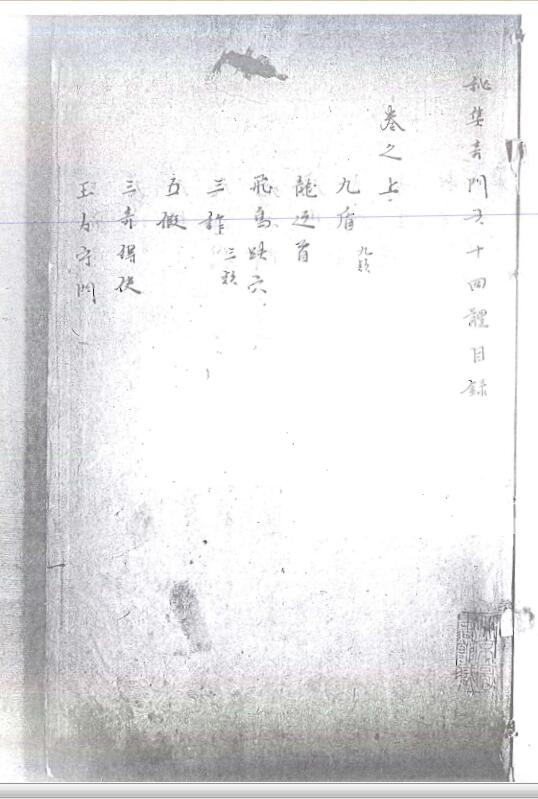 秘集奇門五十四體目錄
卷之上
九盾 九類
龍返首
飛鳥跌穴
三詐 三類
五假
三奇得使
玉女守門